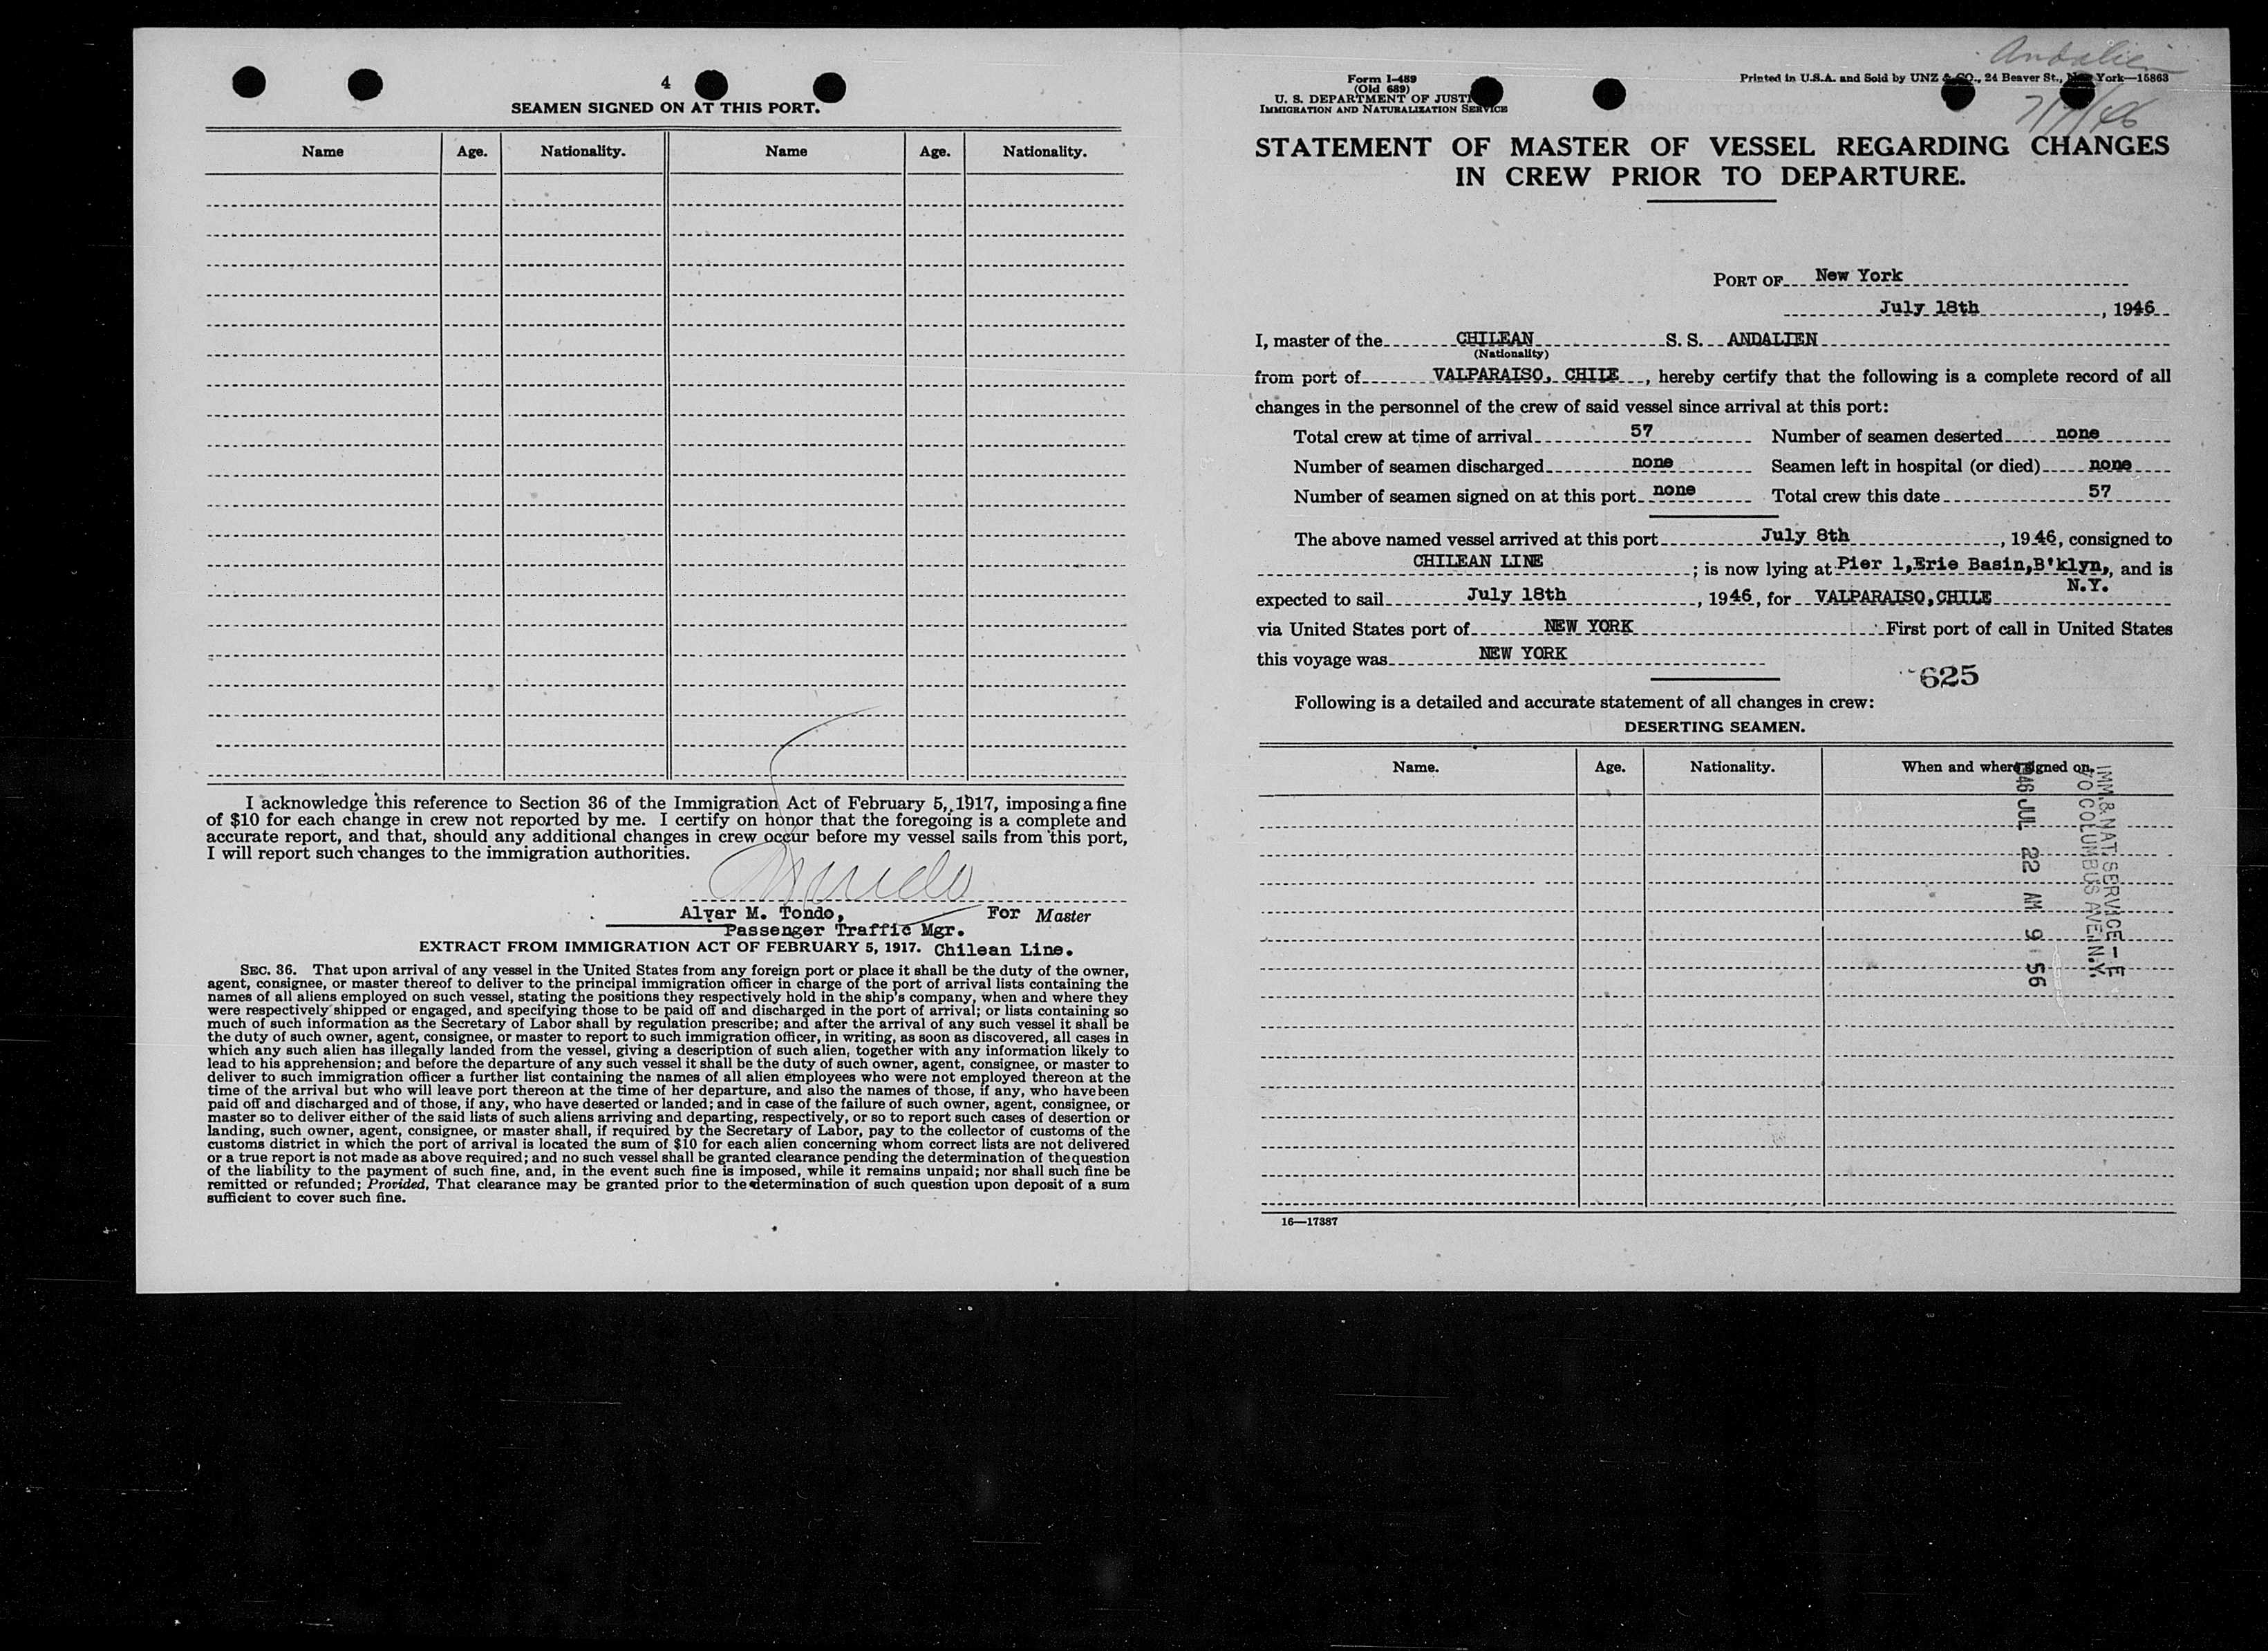 4
SEAMEN SIGNED ON AT THIS PORT.
Name Age. Nationality. Name Age. Nationality.
I acknowledge this reference to Section 36 of the Immigration Act of February 5, 1917, imposing a fine
of $10 for each change in crew not reported by me. I certify on honor that the foregoing is a complete and
accurate report, and that, should any additional changes in crew occur before my vessel sails from this port,
I will report such changes to the immigration authorities.
Alvar M. Tondo, For Master
Passenger Traffic Mgr.
EXTRACT FROM IMMIGRATION ACT OF FEBRUARY 5, 1917. Chilean Line.
SEC. 36. That upon arrival of any vessel in the United States from any foreign port or place it shall be the duty of the owner,
agent, consignee, or master thereof to deliver to the principal immigration officer in charge of the port of arrival lists containing the
names of all aliens employed on such vessel, stating the positions they respectively hold in the ship's company, when and where they
were respectively shipped or engaged, and specifying those to be paid off and discharged in the port of arrival; or lists containing so
much of such information as the Secretary of Labor shall by regulation prescribe; and after the arrival of any such vessel it shall be
the duty of such owner, agent, consignee, or master to report to such immigration officer, in writing, as soon as discovered, all cases in
which any such alien has illegally landed from the vessel, giving a description of such alien, together with any information likely to
lead to his apprehension; and before the departure of any such vessel it shall be the duty of such owner, agent, consignee, or master to
deliver to such immigration officer a further list containing the names of all alien employees who were not employed thereon at the
time of the arrival but who will leave port thereon at the time of her departure, and also the names of those, if any, who have been
paid off and discharged and of those, if any, who have deserted or landed; and in case of the failure of such owner, agent, consignee, or
master so to deliver either of the said lists of such aliens arriving and departing, respectively, or so to report such cases of desertion or
landing, such owner, agent, consignee, or master shall, if required by the Secretary of Labor, pay to the collector of customs of the
customs district in which the port of arrival is located the sum of $10 for each alien concerning whom correct lists are not delivered
or a true report is not made as above required; and no such vessel shall be granted clearance pending the determination of the question
of the liability to the payment of such fine, and, in the event such fine is imposed, while it remains unpaid; nor shall such fine be
remitted or refunded; Provided, That clearance may be granted prior to the determination of such question upon deposit of a sum
sufficient to cover such fine.
Andalien
7/7/46
Form I-489
(Old 689)
U. S. DEPARTMENT OF JUSTI
IMMIGRATION AND NATURALIZATION SERVICE
Printed in U.S.A. and Sold by UNZ & CO., 24 Beaver St., New York—15863
STATEMENT OF MASTER OF VESSEL REGARDING CHANGES
IN CREW PRIOR TO DEPARTURE.
PORT OF New York
July 18th, 1946
I, master of the CHILEAN S. S. ANDALIEN
(Nationality)
from port of VALPARAISO, CHILE, hereby certify that the following is a complete record of all
changes in the personnel of the crew of said vessel since arrival at this port:
Total crew at time of arrival 57 Number of seamen deserted none
Number of seamen discharged none Seamen left in hospital (or died) none
Number of seamen signed on at this port none Total crew this date 57
The above named vessel arrived at this port July 8th, 1946, consigned to
CHILEAN LINE; is now lying at Pier 1, Erie Basin, B'klyn, and is
N.Y.
expected to sail July 18th, 1946, for VALPARAISO, CHILE
via United States port of NEW YORK First port of call in United States
this voyage was NEW YORK
625
Following is a detailed and accurate statement of all changes in crew:
DESERTING SEAMEN.
Name. Age. Nationality. When and where signed on.
IMM. & NAT. SERVICE - E
70 COLUMBUS AVE. N.Y.
1946 JUL 22 AM 9 56
16—17387